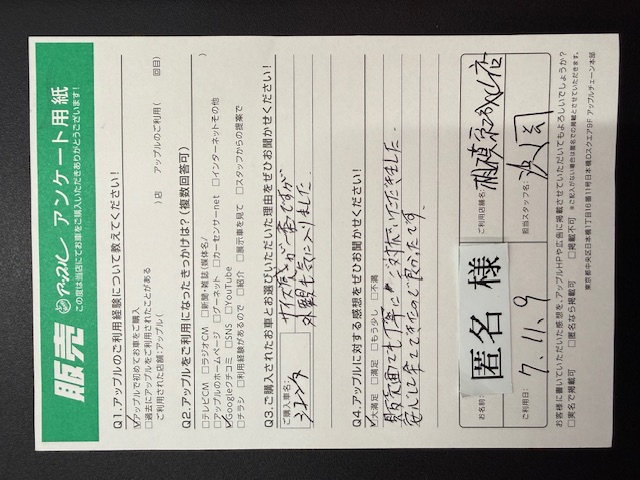 販売 アップル アンケート用紙
この度は当店にてお車をご購入いただきありがとうございます!
Q1.アップルのご利用経験について教えてください!
☑アップルで初めてお車をご購入
□過去にアップルをご利用されたことがある
ご利用された店舗:アップル( )店 アップルのご利用( 回目)
Q2.アップルをご利用になったきっかけは?(複数回答可)
□テレビCM □ラジオCM □新聞・雑誌(媒体名/ )
□アップルのホームページ □グーネット □カーセンサーnet □インターネットその他
☑Googleクチコミ □SNS □YouTube
□チラシ □利用経験があるので □紹介 □展示車を見て □スタッフからの提案で
Q3.ご購入されたお車とお選びいただいた理由をぜひお聞かせください!
ご購入車名:
シエンタ
サイズ感が一番ですが
外観も気に入りました。
Q4.アップルに対する感想をぜひお聞かせください!
☑大満足 □満足 □もう少し □不満
販売面でも丁寧にご対応いただきました。
安心して
良かったです。
お名前: 匿名 様
ご利用店舗名: 相模原
店
ご利用日: 7.11.9
担当スタッフ名:
お客様に書いていただいた感想を、アップルHPや広告に掲載させていただいてもよろしいでしょうか?
□実名で掲載可 □匿名なら掲載可 □掲載不可 ※ご記入がない場合は匿名での掲載とさせていただきます。
東京都中央区日本橋1丁目16番11号日本橋Dスクエア9F アップルチェーン本部